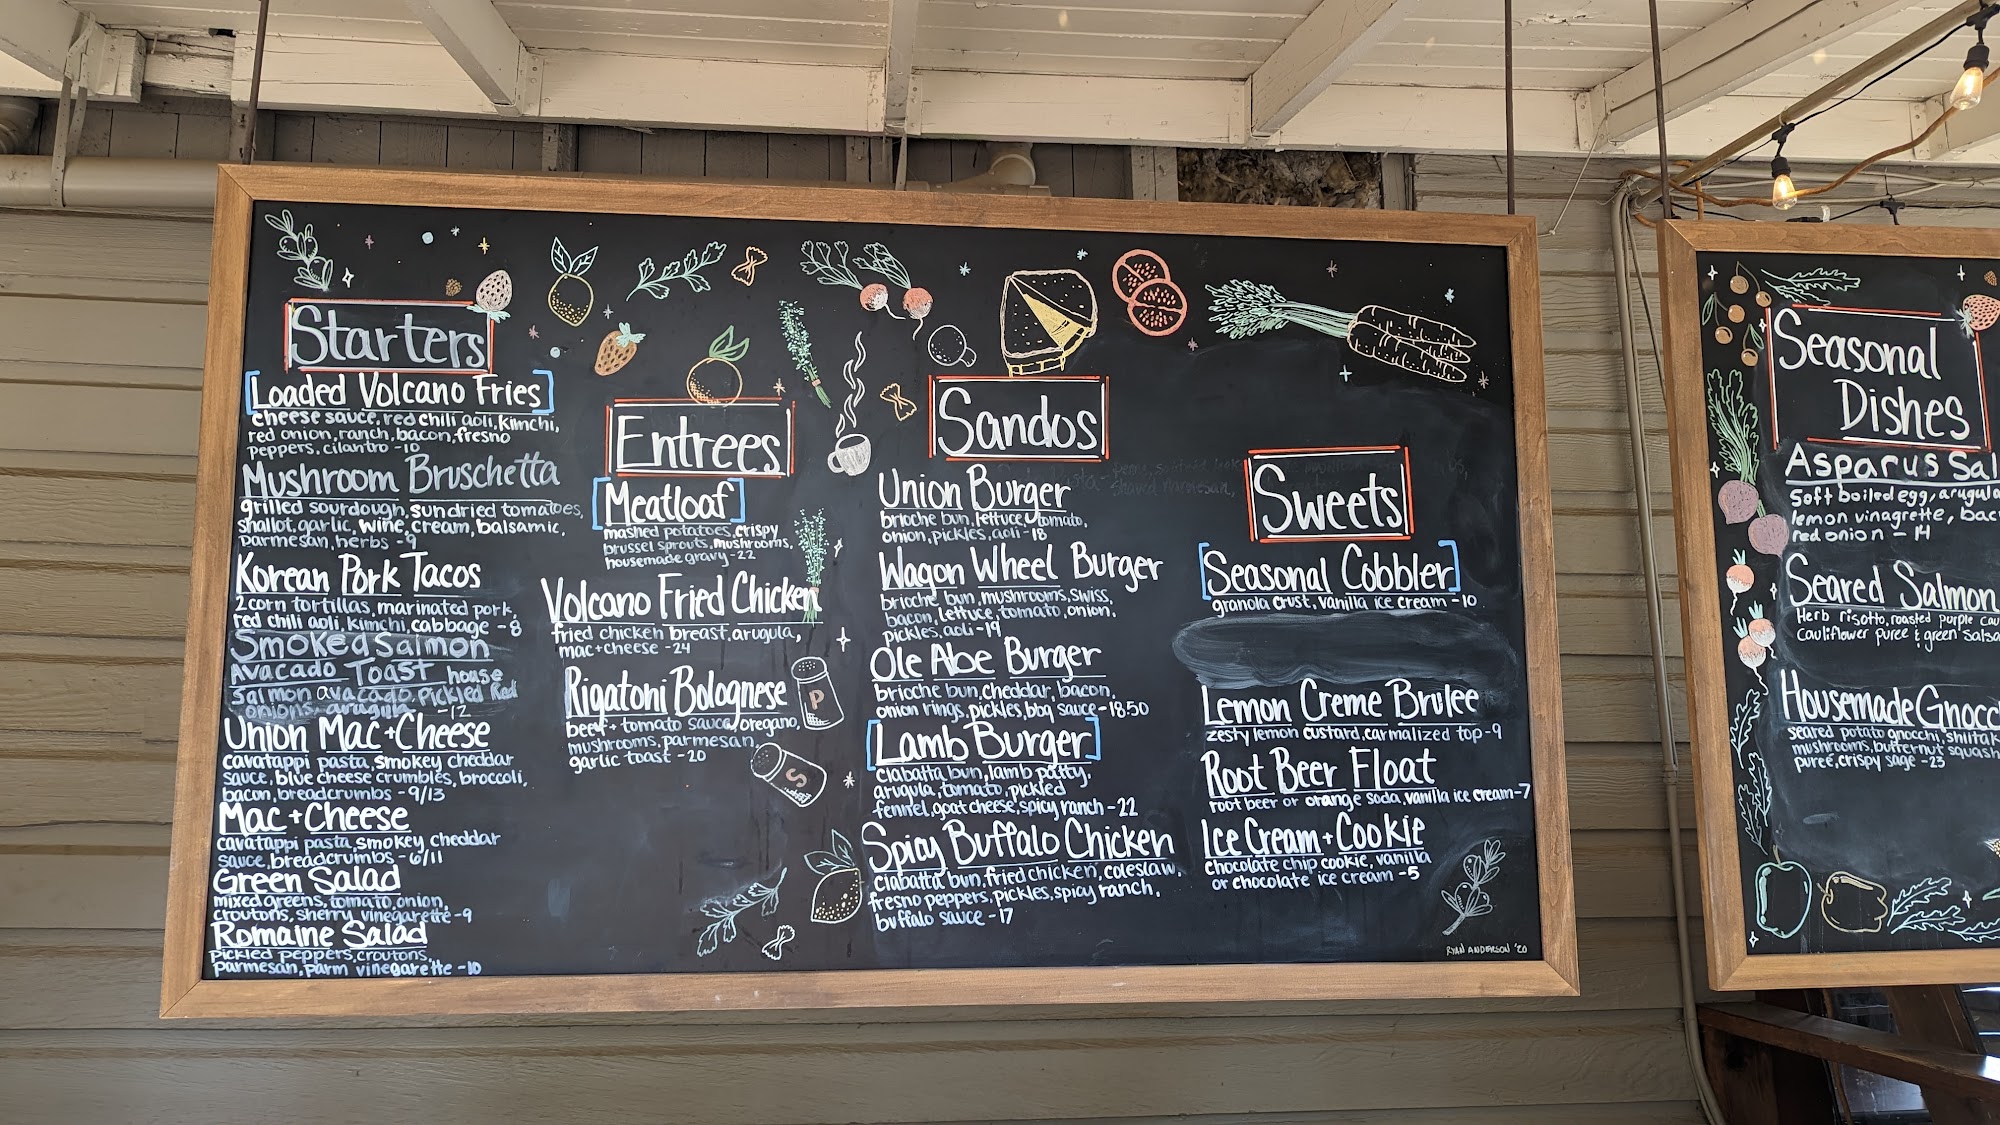 Starters
Loaded Volcano Fries
cheese sauce, red chili aoli, kimchi,
red onion, ranch, bacon, fresno
peppers, cilantro - 10
Mushroom Bruschetta
grilled sourdough, sundried tomatoes,
shallot, garlic, wine, cream, balsamic,
parmesan, herbs - 9
Korean Pork Tacos
2 corn tortillas, marinated pork,
red chili aoli, kimchi, cabbage - 8
Smoked Salmon
Avacado Toast house
salmon avacado pickled Red
onions, arugula - 12
Union Mac + Cheese
cavatappi pasta, smokey cheddar
sauce, blue cheese crumbles, broccoli,
bacon, breadcrumbs - 9/13
Mac + Cheese
cavatappi pasta, smokey cheddar
sauce, breadcrumbs - 6/11
Green Salad
mixed greens, tomato, onion,
croutons, sherry vinegarette - 9
Romaine Salad
pickled peppers, croutons,
parmesan, parm vinegarette - 10
Entrees
Meatloaf
mashed potatoes, crispy
brussel sprouts, mushrooms,
housemade gravy - 22
Volcano Fried Chicken
fried chicken breast, arugula,
mac + cheese - 24
Rigatoni Bolognese
beef + tomato sauce, oregano,
mushrooms, parmesan,
garlic toast - 20
P
S
Sandos
Union Burger
brioche bun, lettuce, tomato,
onion, pickles, aoli - 18
Wagon Wheel Burger
brioche bun, mushrooms, swiss,
bacon, lettuce, tomato, onion,
pickles, aoli - 19
Ole Abe Burger
brioche bun, cheddar, bacon,
onion rings, pickles, bbq sauce - 18.50
Lamb Burger
ciabatta bun, lamb patty,
arugula, tomato, pickled
fennel, goat cheese, spicy ranch - 22
Spicy Buffalo Chicken
ciabatta bun, fried chicken, coleslaw,
fresno peppers, pickles, spicy ranch,
buffalo sauce - 17
Sweets
Seasonal Cobbler
granola crust, vanilla ice cream - 10
Lemon Creme Brulee
zesty lemon custard, carmalized top - 9
Root Beer Float
root beer or orange soda, vanilla ice cream - 7
Ice Cream + Cookie
chocolate chip cookie, vanilla
or chocolate ice cream - 5
RYAN ANDERSON '20
Seasonal
Dishes
Asparus Sal
Soft boiled egg, arugula
lemon vinagrette, bac
red onion - 14
Seared Salmon
Herb risotto, roasted purple cau
cauliflower puree & green salsa
Housemade Gnocc
seared potato gnocchi, shiitak
mushrooms, butternut squash
puree, crispy sage - 23